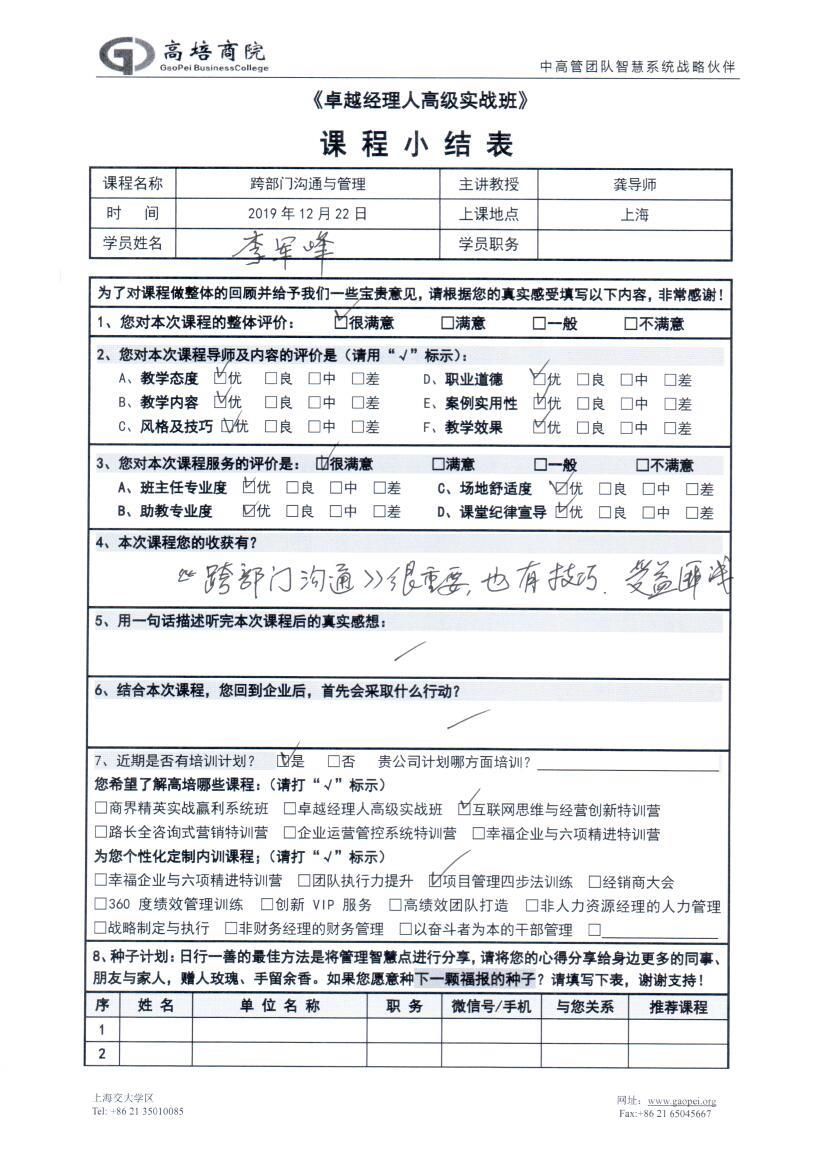 高培商院
GaoPei BusinessCollege
中高管团队智慧系统战略伙伴
《卓越经理人高级实战班》
课程小结表
课程名称 跨部门沟通与管理 主讲教授 龚导师
时 间 2019年12月22日 上课地点 上海
学员姓名 李军峰 学员职务
为了对课程做整体的回顾并给予我们一些宝贵意见，请根据您的真实感受填写以下内容，非常感谢！
1、您对本次课程的整体评价： ☑很满意 □满意 □一般 □不满意
2、您对本次课程导师及内容的评价是（请用“√”标示）：
A、教学态度 ☑优 □良 □中 □差 D、职业道德 ☑优 □良 □中 □差
B、教学内容 ☑优 □良 □中 □差 E、案例实用性 ☑优 □良 □中 □差
C、风格及技巧 ☑优 □良 □中 □差 F、教学效果 ☑优 □良 □中 □差
3、您对本次课程服务的评价是： ☑很满意 □满意 □一般 □不满意
A、班主任专业度 ☑优 □良 □中 □差 C、场地舒适度 ☑优 □良 □中 □差
B、助教专业度 ☑优 □良 □中 □差 D、课堂纪律宣导 ☑优 □良 □中 □差
4、本次课程您的收获有？
《跨部门沟通》很重要，也有技巧．受益匪浅
5、用一句话描述听完本次课程后的真实感想：
6、结合本次课程，您回到企业后，首先会采取什么行动？
7、近期是否有培训计划？ ☑是 □否 贵公司计划哪方面培训？
您希望了解高培哪些课程：（请打“√”标示）
□商界精英实战赢利系统班 □卓越经理人高级实战班 ☑互联网思维与经营创新特训营
□路长全咨询式营销特训营 □企业运营管控系统特训营 □幸福企业与六项精进特训营
为您个性化定制内训课程；（请打“√”标示）
□幸福企业与六项精进特训营 □团队执行力提升 ☑项目管理四步法训练 □经销商大会
□360 度绩效管理训练 □创新 VIP 服务 □高绩效团队打造 □非人力资源经理的人力管理
□战略制定与执行 □非财务经理的财务管理 □以奋斗者为本的干部管理 □
8、种子计划：日行一善的最佳方法是将管理智慧点进行分享，请将您的心得分享给身边更多的同事、
朋友与家人，赠人玫瑰、手留余香。如果您愿意种下一颗福报的种子？请填写下表，谢谢支持！
序 姓名 单位名称 职务 微信号/手机 与您关系 推荐课程
1
2
上海交大学区
Tel: +86 21 35010085
网址：www.gaopei.org
Fax:+86 21 65045667